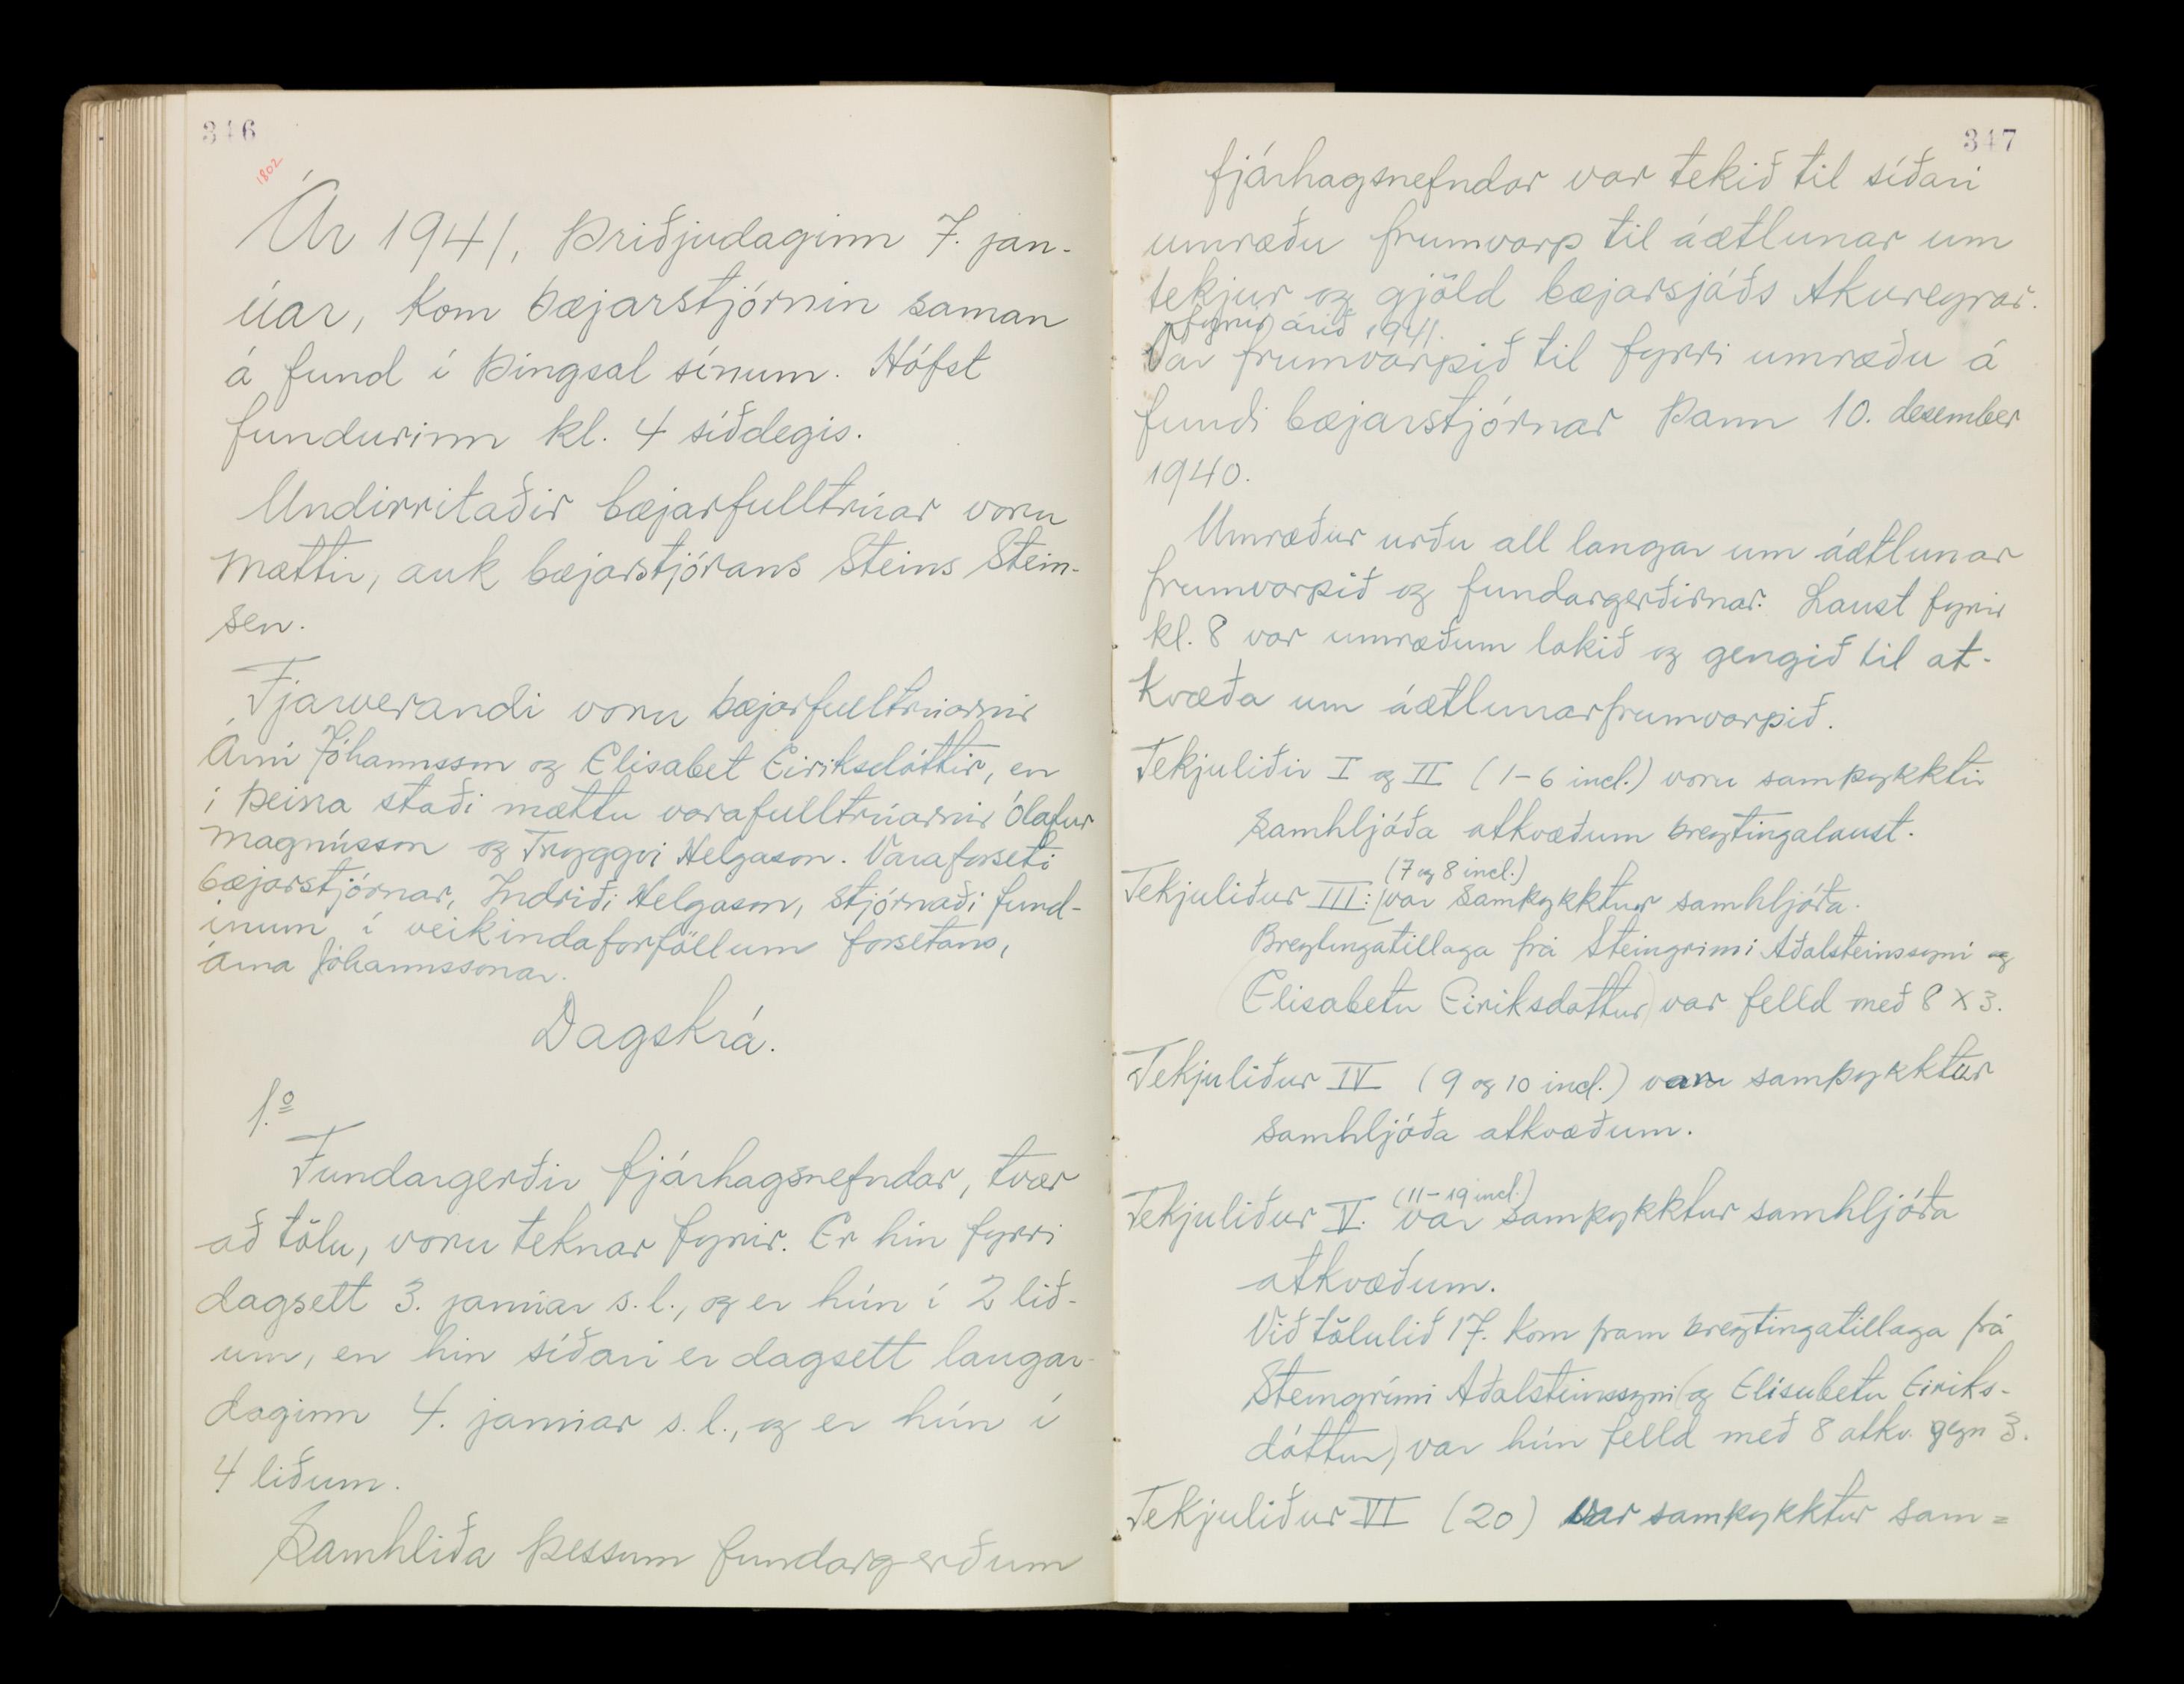 346
1802
Ár 1941, þriðjudaginn 7. jan-
úar, kom bæjarstjórnin saman
á fund í þingsal sínum. Hófst
fundurinn kl. 4 síðdegis.
Undirritaðir bæjarfulltrúar voru
mættir, auk bæjarstjórans Steins Stein-
sen.
Fjarverandi voru bæjarfulltrúarnir
Árni Jóhannsson og Elísabet Eiríksdóttir, en
í þeirra staði mættu varafulltrúarnir Ólafur
Magnússon og Tryggvi Helgason. Varaforseti
bæjarstjórnar, Indriði Helgason, stjórnaði fund-
inum í veikindaforföllum forsetans,
Árna Jóhannssonar.
Dagskrá.
1.º
Fundargerðir fjárhagsnefndar, tvær
að tölu, voru teknar fyrir. Er hin fyrri
dagsett 3. janúar s.l., og er hún í 2 lið-
um, en hin síðari er dagsett laugar-
daginn 4. janúar s.l., og er hún í
4 liðum.
Samhliða þessum fundargerðum
347
fjárhagsnefndar var tekið til síðari
umræðu frumvarp til áætlunar um
tekjur og gjöld bæjarsjóðs Akureyrar.
fyrir árið 1941.
Var frumvarpið til fyrri umræðu á
fundi bæjarstjórnar þann 10. desember
1940.
Umræður urðu all langar um áætlunar
frumvarpið og fundargerðirnar. Laust fyrir
kl. 8 var umræðum lokið og gengið til at-
kvæða um áætlunarfrumvarpið.
Tekjuliðir I og II (1-6 incl.) voru samþykktir
samhljóða atkvæðum breytingalaust.
(7 og 8 incl.)
Tekjuliður III: var samþykktur samhljóða.
Breytingatillaga frá Steingrími Aðalsteinssyni og
Elísabetu Eiríksdóttur) var felld með 8 x 3.
Tekjuliður IV (9 og 10 incl.) var samþykktur
samhljóða atkvæðum.
(11-19 incl.)
Tekjuliður V. var samþykktur samhljóða
atkvæðum.
Við tölulið 17. kom fram breytingatillaga frá
Steingrími Aðalsteinssyni (og Elísabetu Eiríks-
dóttur) var hún felld með 8 atkv. gegn 3.
Tekjuliður VI (20) var samþykktur sam=